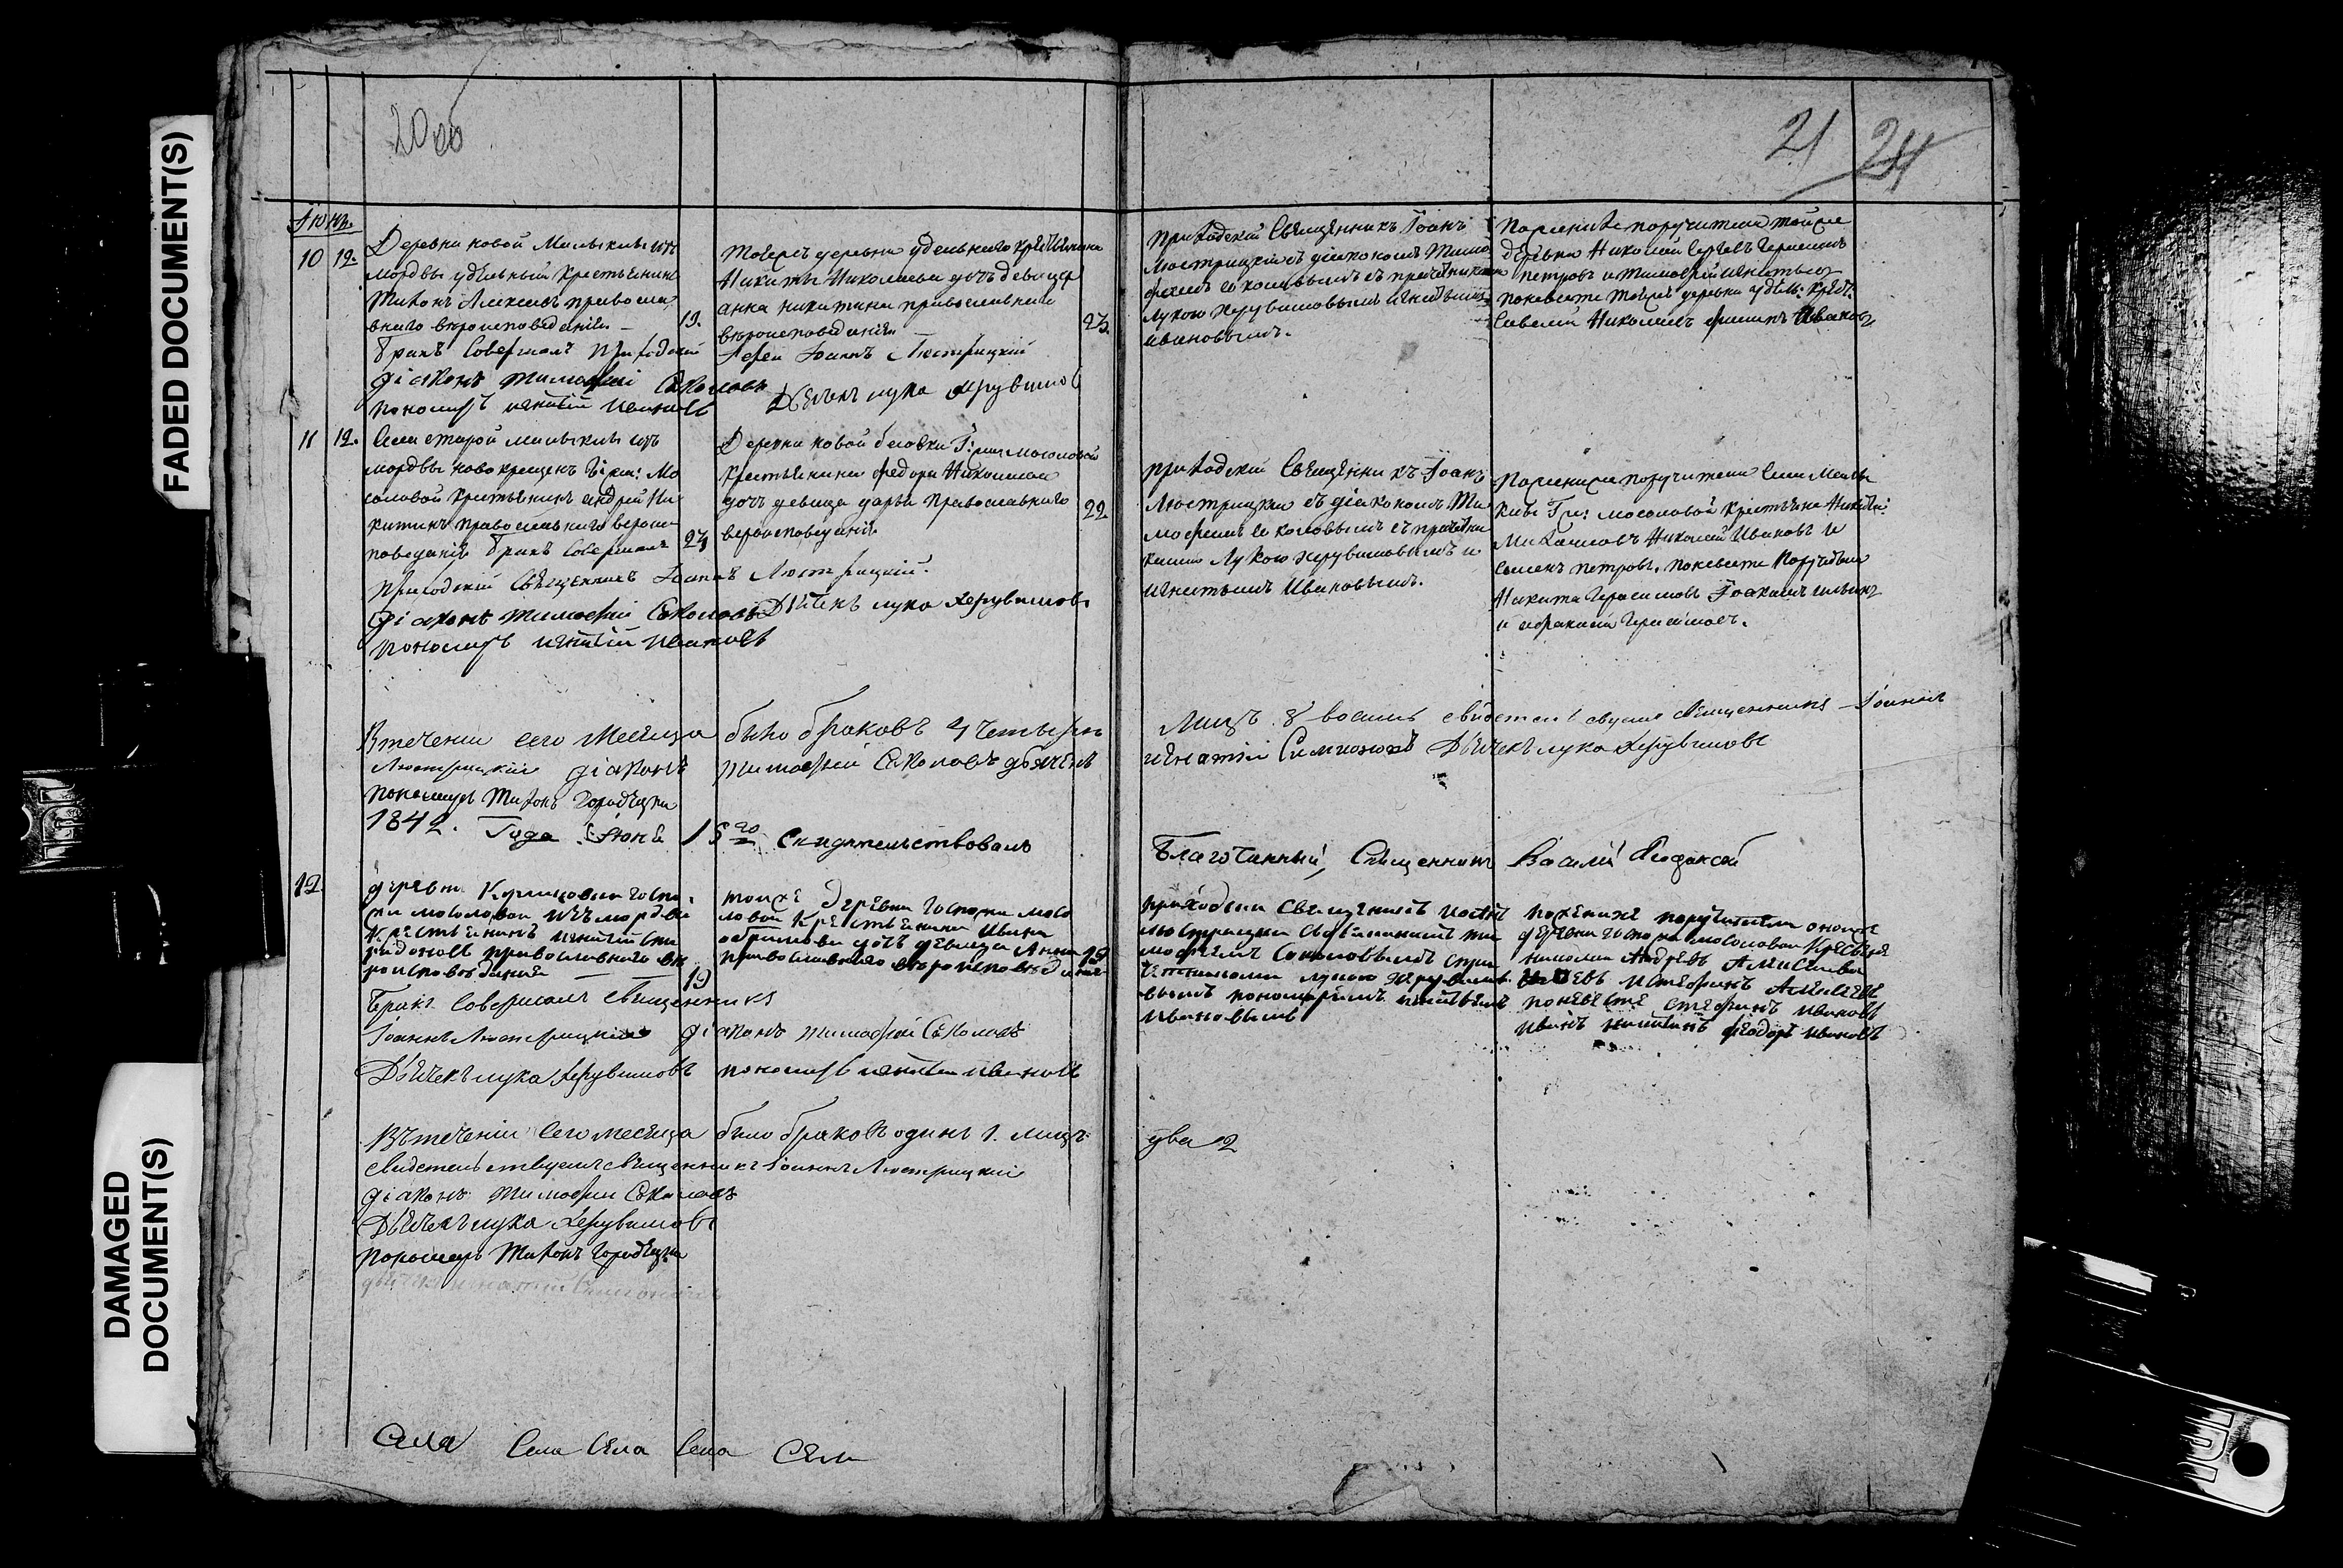 FADED DOCUMENT(S)
DAMAGED
DOCUMENT(S)
20 об
21 24
Июнь.
10 12.
Деревни новой Малыклы изъ
мордвы удѣльный крестьянинъ
Тихонъ Алексѣевъ православ
внаго вѣроисповеданія. — 19.
Бракъ Совершалъ Приходскій
діаконъ Тимофей Соколовъ
пономарь игнатій ивановъ
Тойже деревни удельнаго крестьянина
Никиты Николаева дочь девица
анна никитина православнаго
вероисповеданія 23.
Іерей Іоаннъ Люстрицкій
Дьячекъ лука Херувимовъ
приходскій Священникъ Іоанъ
Люстрицкій съ діакономъ Тимо
феемъ Соколовымъ съ причетниками
Лукою Херувимовымъ игнатьемъ
ивановымъ.
По женихе поручители тойже
деревни Николай Герасимъ
Петровъ и Тимофей игнатьевъ
по невесте тойже деревни удѣль: крест:
Савелій Николаевъ Ивановъ
11 12.
Села старой малыклы изъ
мордвы новокрещенъ Г: Мо
соловой крестьянинъ андрей Ни
китинъ православнаго вероис
поведанія Бракъ Совершалъ 23
Приходскій Священникъ Іоаннъ Люстрицкій.
діаконъ Тимофей Соколовъ Дьячекъ лука Херувимовъ
пономарь игнатій ивановъ
Деревни новой бесовки Г: мосоловой
крестьянина Федора Николаева
дочь девица дарья православнаго 22
вероисповеданія
приходскій Священникъ Іоанъ
Люстрицкій съ діакономъ Ти
мофеемъ Соколовымъ съ причетни
ками Лукою Херувимовымъ и
игнатьемъ Ивановымъ.
По женихе поручители Села Малы
клы Г: мосоловой крестьяне Никита
Михайловъ Николай Ивановъ и
Семенъ петровъ. по невесте поручители
Никита Герасимовъ Іоакимъ
и Герасимовъ.
Втеченіи сего Месяца было браковъ 4 четыре
Лицъ 8 восемь свидетельствуемъ Священникъ Іоаннъ
Люстрицкій діаконъ Тимофей Соколовъ дьячекъ
игнатій Симионовъ Дьячекъ лука Херувимовъ
пономарь Тихонъ Городецкій
1842. Года Іюня 15го Свидѣтельствовалъ
Благочинный, Священникъ Василій
12
деревни госпо
жи мосоловой изъ мордвы
крестьянинъ игнатій Спи
ридоновъ православнаго вѣ
роисповеданія 19
тойже деревни госпожи мосо
ловой крестьянина Ивана
дочь девица Анна 19
православнаго вероисповеданія
приходскій священникъ иоанъ
Люстрицкій съ діакономъ ти
мофеемъ Соколовымъ съ при
четниками лукою херувимо
вымъ пономаремъ игнатьемъ
ивановымъ
по женихе поручители оной
деревни госпожи мосоловой крестьяне
николай Андреевъ
Алексеевъ
по невесте стефанъ ивановъ
иванъ никитинъ феодоръ ивановъ
Бракъ Совершалъ Священникъ
Іоаннъ Люстрицкій діаконъ Тимофей Соколовъ
Дьячекъ лука Херувимовъ пономарь игнатій ивановъ
Въ теченіи Сего месяца было браковъ одинъ 1. лицъ
два 2
свидетельствуемъ священникъ Іоаннъ Люстрицкій
діаконъ Тимофей Соколовъ
Дьячекъ лука Херувимовъ
пономарь Тихонъ Городецкій
дьячекъ игнатій Симионовъ
Села Села Села Села Села